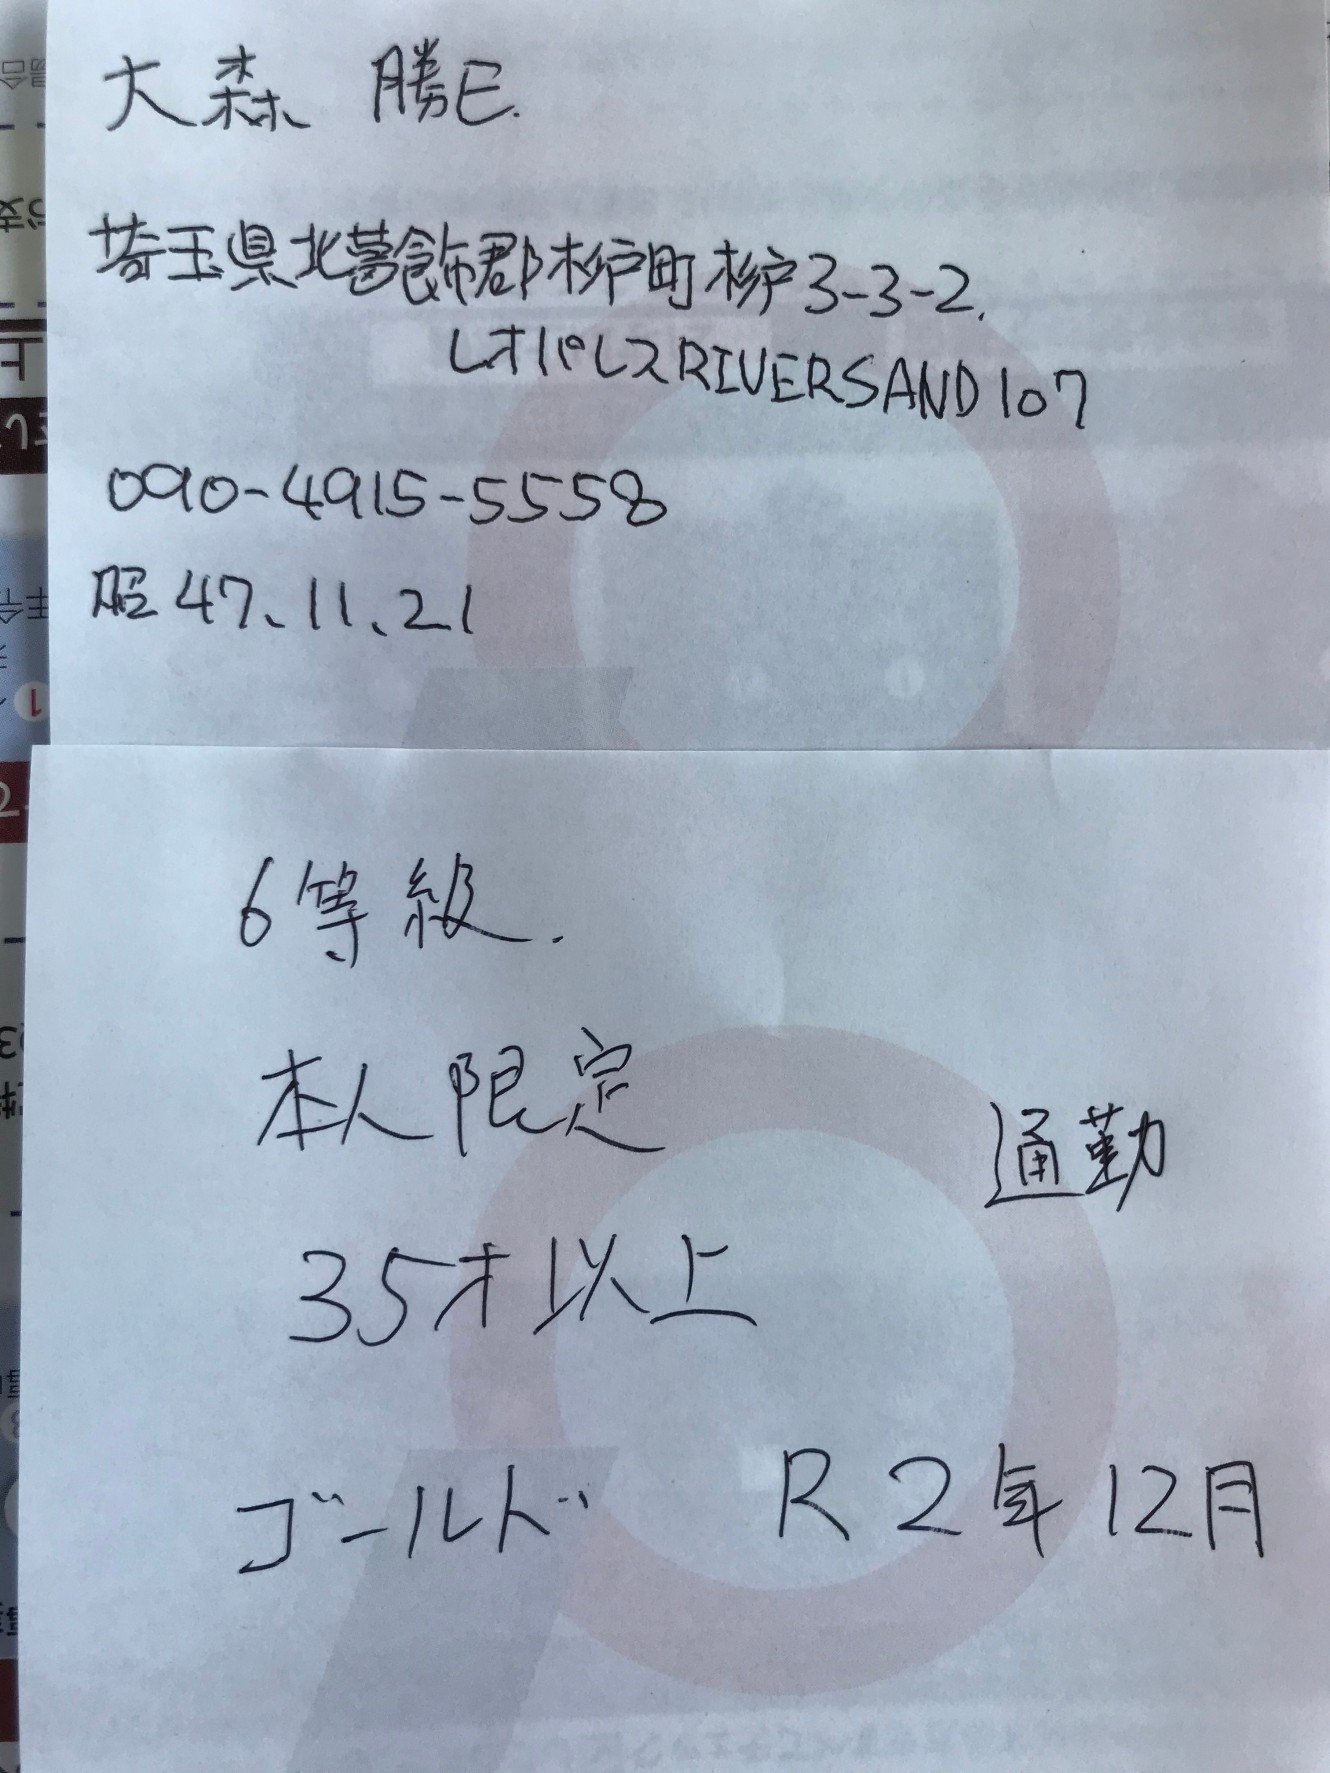 大森 勝巳
埼玉県北葛飾郡杉戸町杉戸3-3-2.
レオパレスRIVERSAND107
090-4915-5558
昭47、11、21
6等級.
本人限定
通勤
35才以上
ゴールド R2年12月